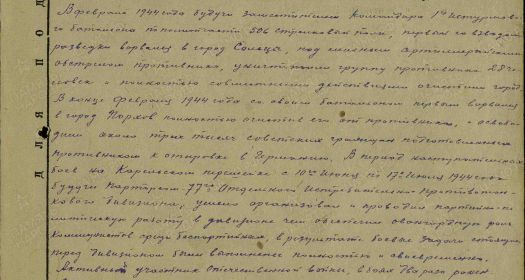 В феврале 1944 года будучи заместителем командира 1го
батальона по политчасти 506 стрелкового полка, первым со взводом
разведки ворвался в город Сольцы, под сильным артиллерийским
обстрелом противника, уничтожили группу противника 28 че-
ловек и полностью совместными действиями очистили город.
В конце февраля 1944 года со своим батальоном первым ворвался
в город Порхов полностью очистив его от противника, и освобо-
дили около трех тысяч советских граждан подготовленных
противником к отправке в Германию. В период наступательных
боев на Карельском перешейке с 10го Июня по 17е Июня 1944 года
будучи парторгом 77го Отдельного Истребительно-Противотан-
кового дивизиона, умело организовал и проводил партийно-по-
литическую работу в дивизионе чем обеспечил авангардную роль
коммунистов среди беспартийных, в результате боевые задачи стоящие
перед дивизионом были выполнены полностью и своевременно.
Активный участник отечественной войны, в боях дважды ранен.
ДЛЯ ПОД